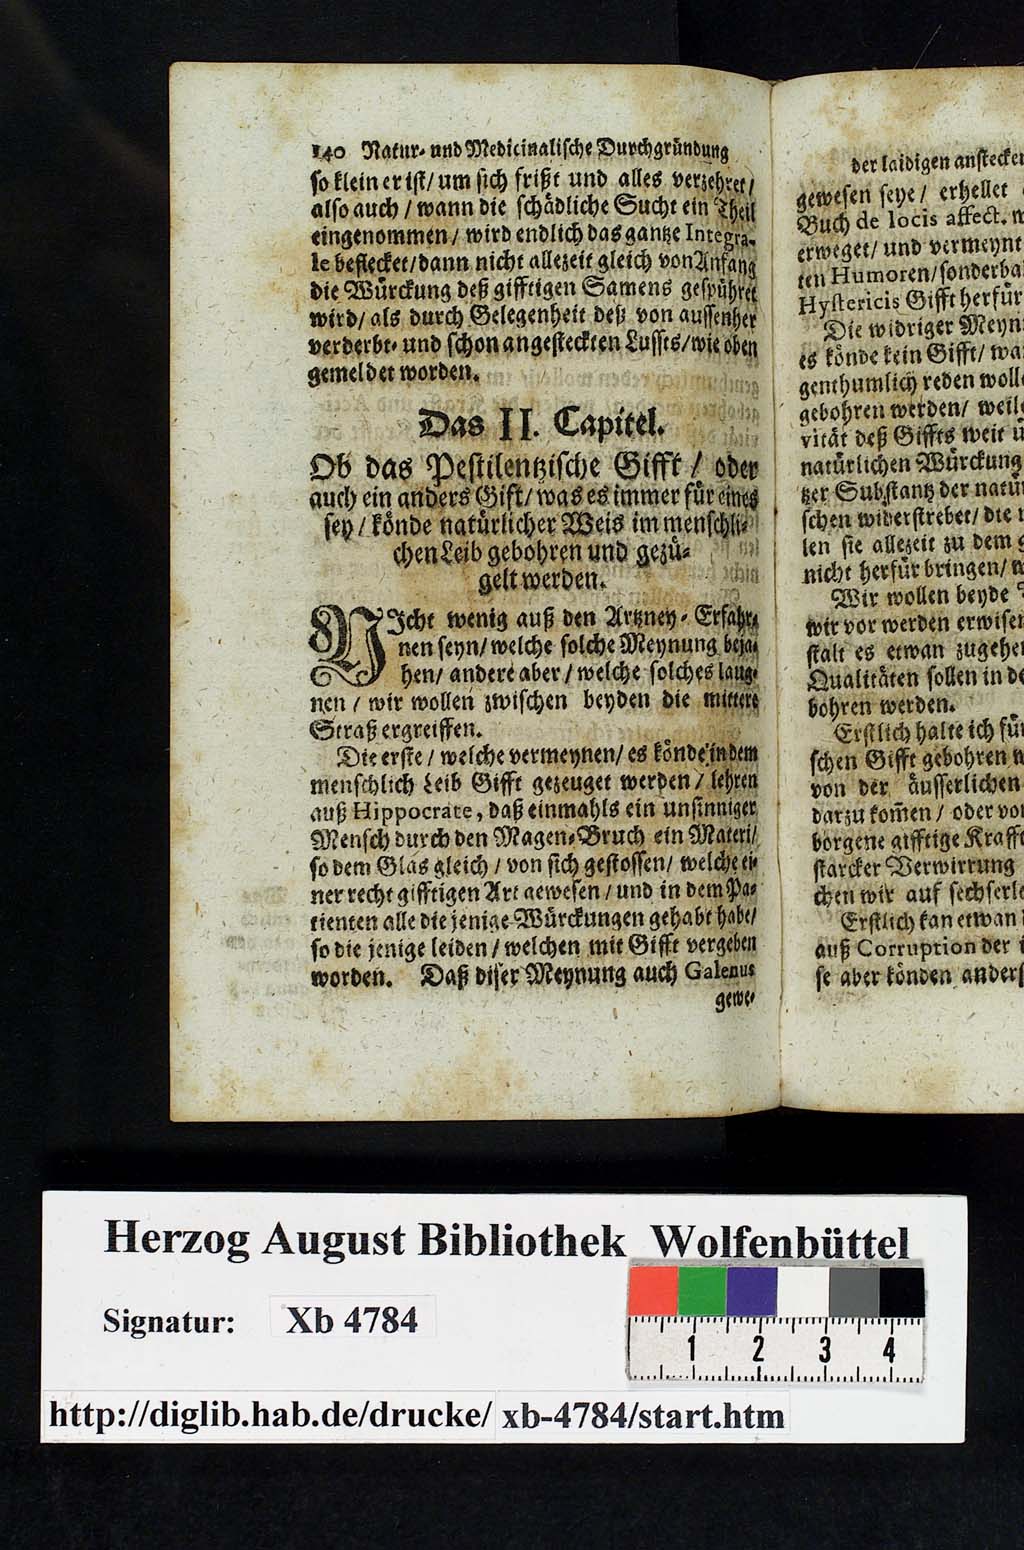 140 Natur- und Medicinalische Durchgründung
so klein er ist/ um sich frißt und alles verzehret/
also auch / wann die schädliche Sucht ein Theil
eingenommen / wird endlich das gantze Integra-
le beflecket/ dann nicht allezeit gleich von Anfang
die Würckung deß gifftigen Samens gespühret
wird/ als durch Gelegenheit deß von aussenher
verderbt- und schon angesteckten Luffts/ wie oben
gemeldet worden.
Das II. Capitel.
Ob das Pestilentzische Gifft / oder
auch ein anders Gift/ was es immer für eines
sey / könde natürlicher Weis im menschli-
chen Leib gebohren und gezü-
gelt werden.
NIcht wenig auß den Artzney- Erfahr-
nen seyn/ welche solche Meynung beja-
hen/ andere aber / welche solches laug-
nen / wir wollen zwischen beyden die mittere
Straß ergreiffen.
Die erste / welche vermeynen/ es könde in dem
menschlich Leib Gifft gezeuget werden / lehren
auß Hippocrate, daß einmahls ein unsinniger
Mensch durch den Magen-Bruch ein Materi/
so dem Glas gleich / von sich gestossen/ welche ei-
ner recht gifftigen Art gewesen / und in dem Pa-
tienten alle die jenige Würckungen gehabt habe/
so die jenige leiden / welchen mit Gifft vergeben
worden. Daß diser Meynung auch Galenus
gewe-
der laidigen anstecken
gewesen seye/ erhellet
Buch de locis affect.
erweget/ und vermeynt
ten Humoren/ sonderba
Hystericis Gifft herfür
Die widriger Meyn
es könde kein Gifft/ wa
genthumlich reden wolle
gebohren werden/ weile
vität deß Giffts weit
natürlichen Würckung
tzer Substantz der natür
schen widerstrebet/ die
len sie allezeit zu dem
nicht herfür bringen/
Wir wollen beyde
wir vor werden erwisen
stalt es etwan zugehe
Qualitäten sollen in de
bohren werden.
Erstlich halte ich für
schen Gifft gebohren
von der äusserlichen
darzu kom̃en / oder von
borgene gifftige Krafft
starcker Verwirrung
chen wir auf sechserle
Erstlich kan etwan
auß Corruption der
se aber könden anders
Herzog August Bibliothek Wolfenbüttel
Signatur: Xb 4784
1 2 3 4
http://diglib.hab.de/drucke/ xb-4784/start.htm